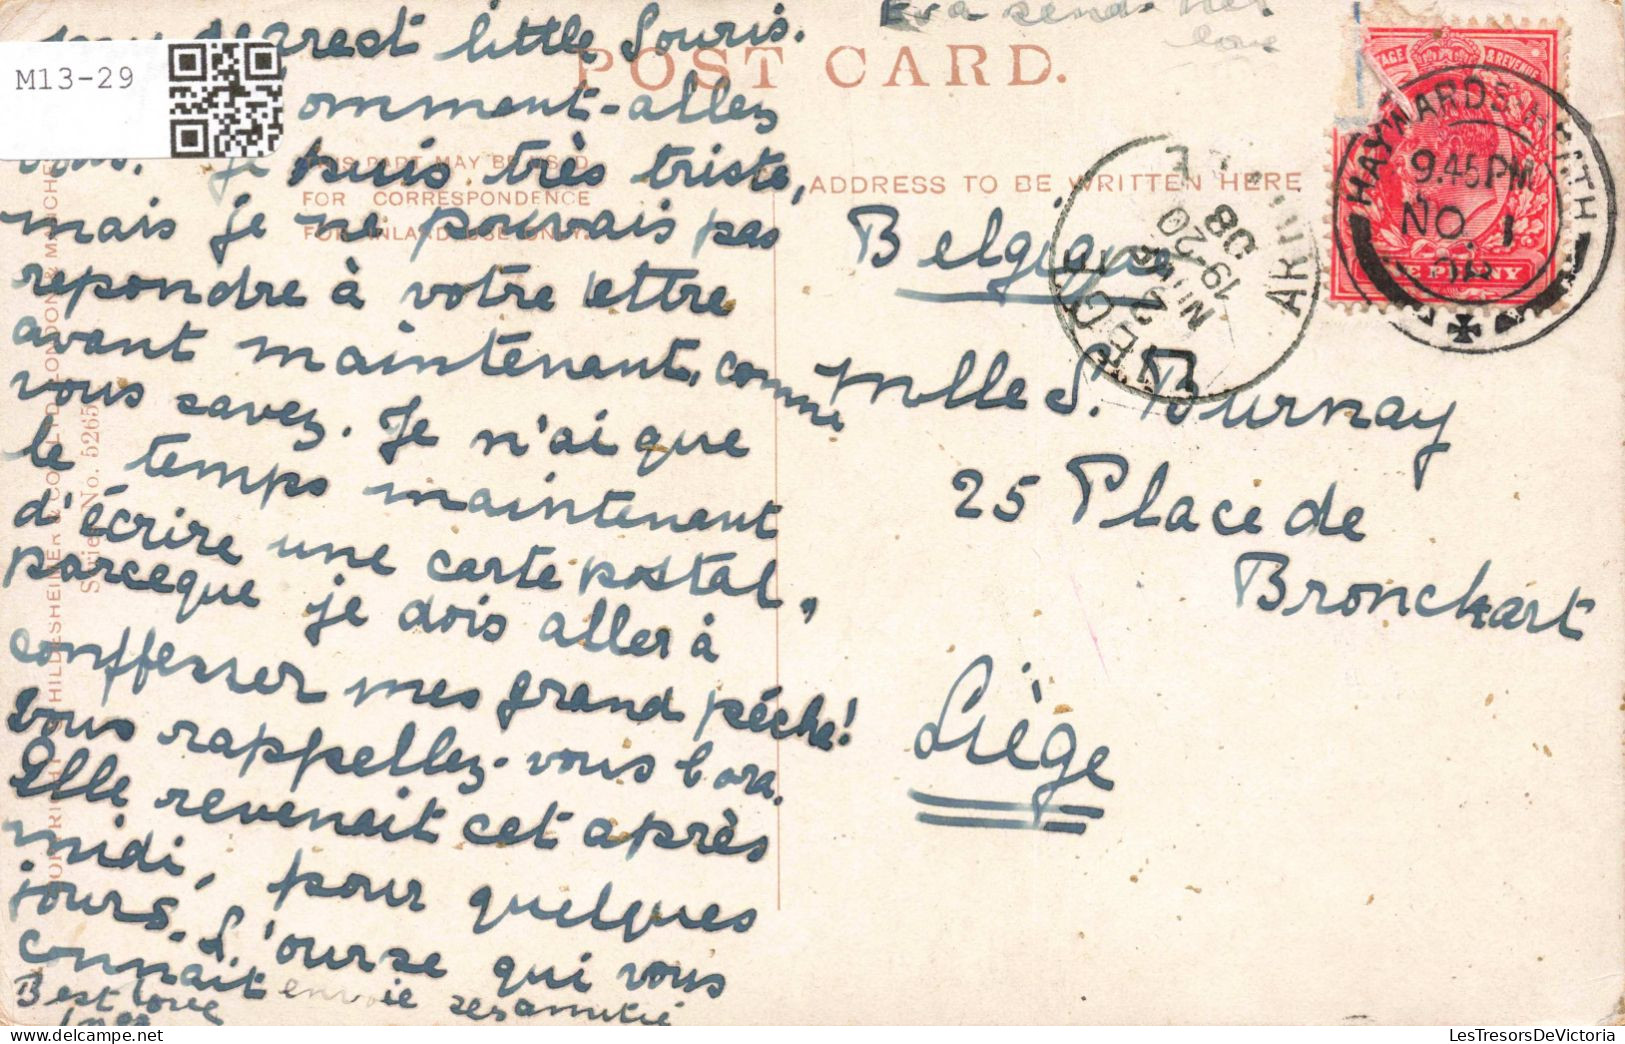 my dearest little Souris.
omment-allez
vous. Je suis très triste,
mais je ne pouvais pas
repondre à votre lettre
avant maintenant, comme
vous savez. Je n'ai que
le temps maintenant
d'écrire une carte postal,
parceque je dois aller à
conffesser mes grand péche!
Vous rappellez-vous Cora.
Elle revenait cet après
midi, pour quelques
jours. L'ourse qui vous
connait envoie ses amitié
Best love
Inez
Eva sends her
love
M13-29
POST CARD.
THIS PART MAY BE USED
FOR CORRESPONDENCE
FOR INLAND USE ONLY.
ADDRESS TO BE WRITTEN HERE
Belgique
Mlle S. Burnay
25 Place de
Bronckart
Liège
HAYWARDS-HEATH
9.45PM
NO. 1
08
LIEGE
ARRIVEE
2 NOV
19-20
08
POSTAGE & REVENUE
ONE PENNY
COPYRIGHT HILDESHEIMER & CO. LTD. LONDON & MANCHE
Series No. 5265
LesTresorsDeVictoria